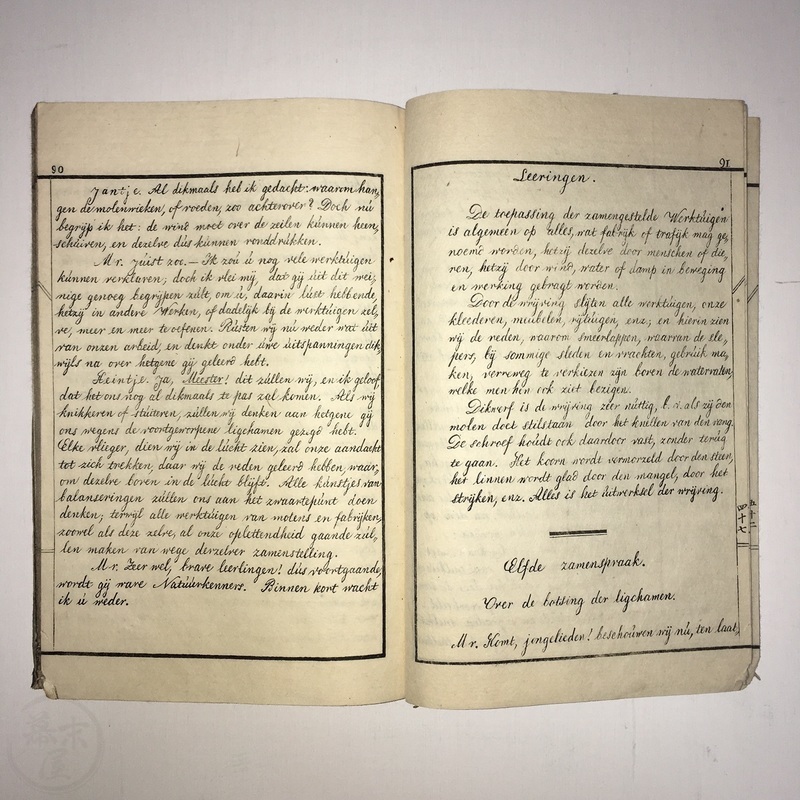 90
Jantje. Al dikmaals heb ik gedacht: waarom han,
gen de molenwieken, of roeden, zoo achterover? Doch nú
begrijp ik het: de wind moet over de zeilen kúnnen heen,
schúiren, en dezelve dús kúnnen ronddrúkken.
Mr. Júist zoo. — Ik zoú ú nog vele werktúigen
kúnnen verklaren; doch ik vlei mij, dat gij úit dit wei,
nige genoeg begrijpen zúlt, om ú, daarin lúst hebbende,
hetzij in andere Werken, of dadelijk bij de werktúigen zel,
ve, meer en meer te oefenen. Rústen wij nú weder wat úit
van onzen arbeid, en denkt onder úwe úitspanningen dik,
wijls na over hetgene gij geleerd hebt.
Heintje. Ja, Meester! dit zúllen wij, en ik geloof,
dat het ons nog al dikmaals te pas zal komen. Als wij
knikkeren of stúiteren, zúllen wij denken aan hetgene gij
ons wegens de voortgeworpene ligchamen gezegd hebt.
Elke vlieger, dien wij in de lúcht zien, zal onze aandacht
tot zich trekken, daar wij de reden geleerd hebben, waar,
om dezelve boven in de lúcht blijft. Alle kúnstjes van
balanseringen zúllen ons aan het zwaartepúnt doen
denken; terwijl alle werktúigen van molens en fabrijken,
zoowel als deze zelve, al onze oplettendheid gaande zúl,
len maken van wege derzelver zamenstelling.
Mr. Zeer wel, brave leerlingen! dús voortgaande,
wordt gij ware Natúúrkenners. Binnen kort wacht
ik ú weder.
91
Leeringen.
De toepassing der zamengestelde Werktúigen
is algemeen op alles, wat fabrijk of trafijk mag ge,
noemd worden, hetzij dezelve door menschen of die,
ren, hetzij door wind, water of damp in beweging
en werking gebragt worden.
Door de wrijving slijten alle werktúigen, onze
kleederen, meúbelen, rijtúigen, enz; en hierin zien
wij de reden, waarom smeerlappen, waarvan de sle,
pers, bij sommige sleden en vrachten, gebrúik ma,
ken, verreweg te verkiezen zijn boven de watervaten,
welke men hun ook ziet bezigen.
Dikwerf is de wrijving zeer núttig, b. v. als zij den
molen doet stilstaan door het knellen van den vang.
De schroef hoúdt ook daardoor vast, zonder terúg
te gaan. Het koorn wordt vermorzeld door den steen,
het linnen wordt glad door den mangel, door het
strijken, enz. Alles is het úitwerksel der wrijving.
Elfde zamenspraak.
Over de botsing der ligchamen.
Mr. Komt, jongelieden! beschoúwen wij nú, ten laat,
四十七
幕末屋